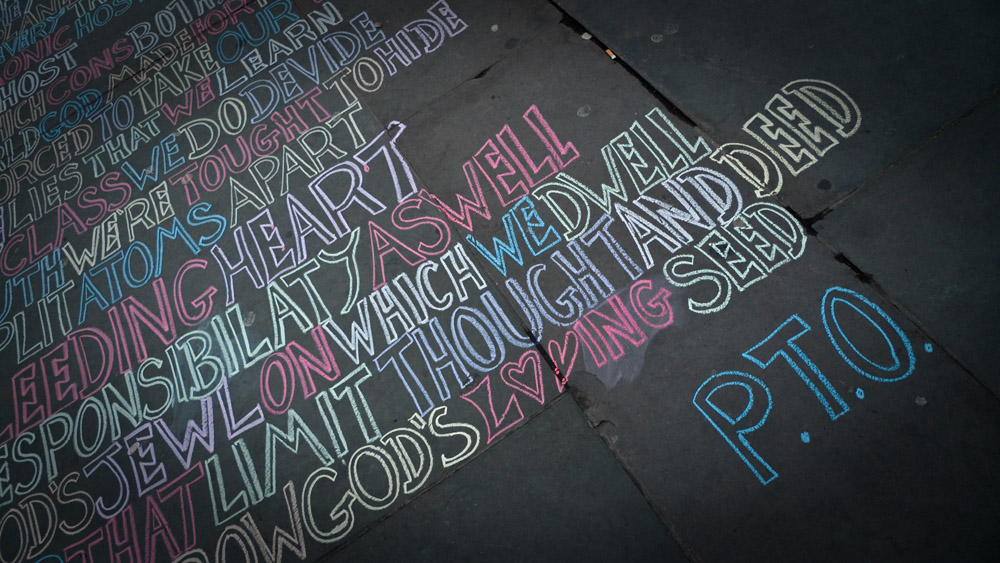 HOST CONS BOTH
GOD MADE FOR
TO TAKE OUR
LIES THAT WE LEARN
CLASS WE DO DEVIDE
UTH WE'RE TOUGHT TO HIDE
PLIT ATOMS APART
EEDING HEART
ESPONSIBILATY ASWELL
OD'S JEWL ON WHICH WE DWELL
THAT LIMIT THOUGHT AND DEED
ROW GOD'S LOVING SEED
P.T.O.